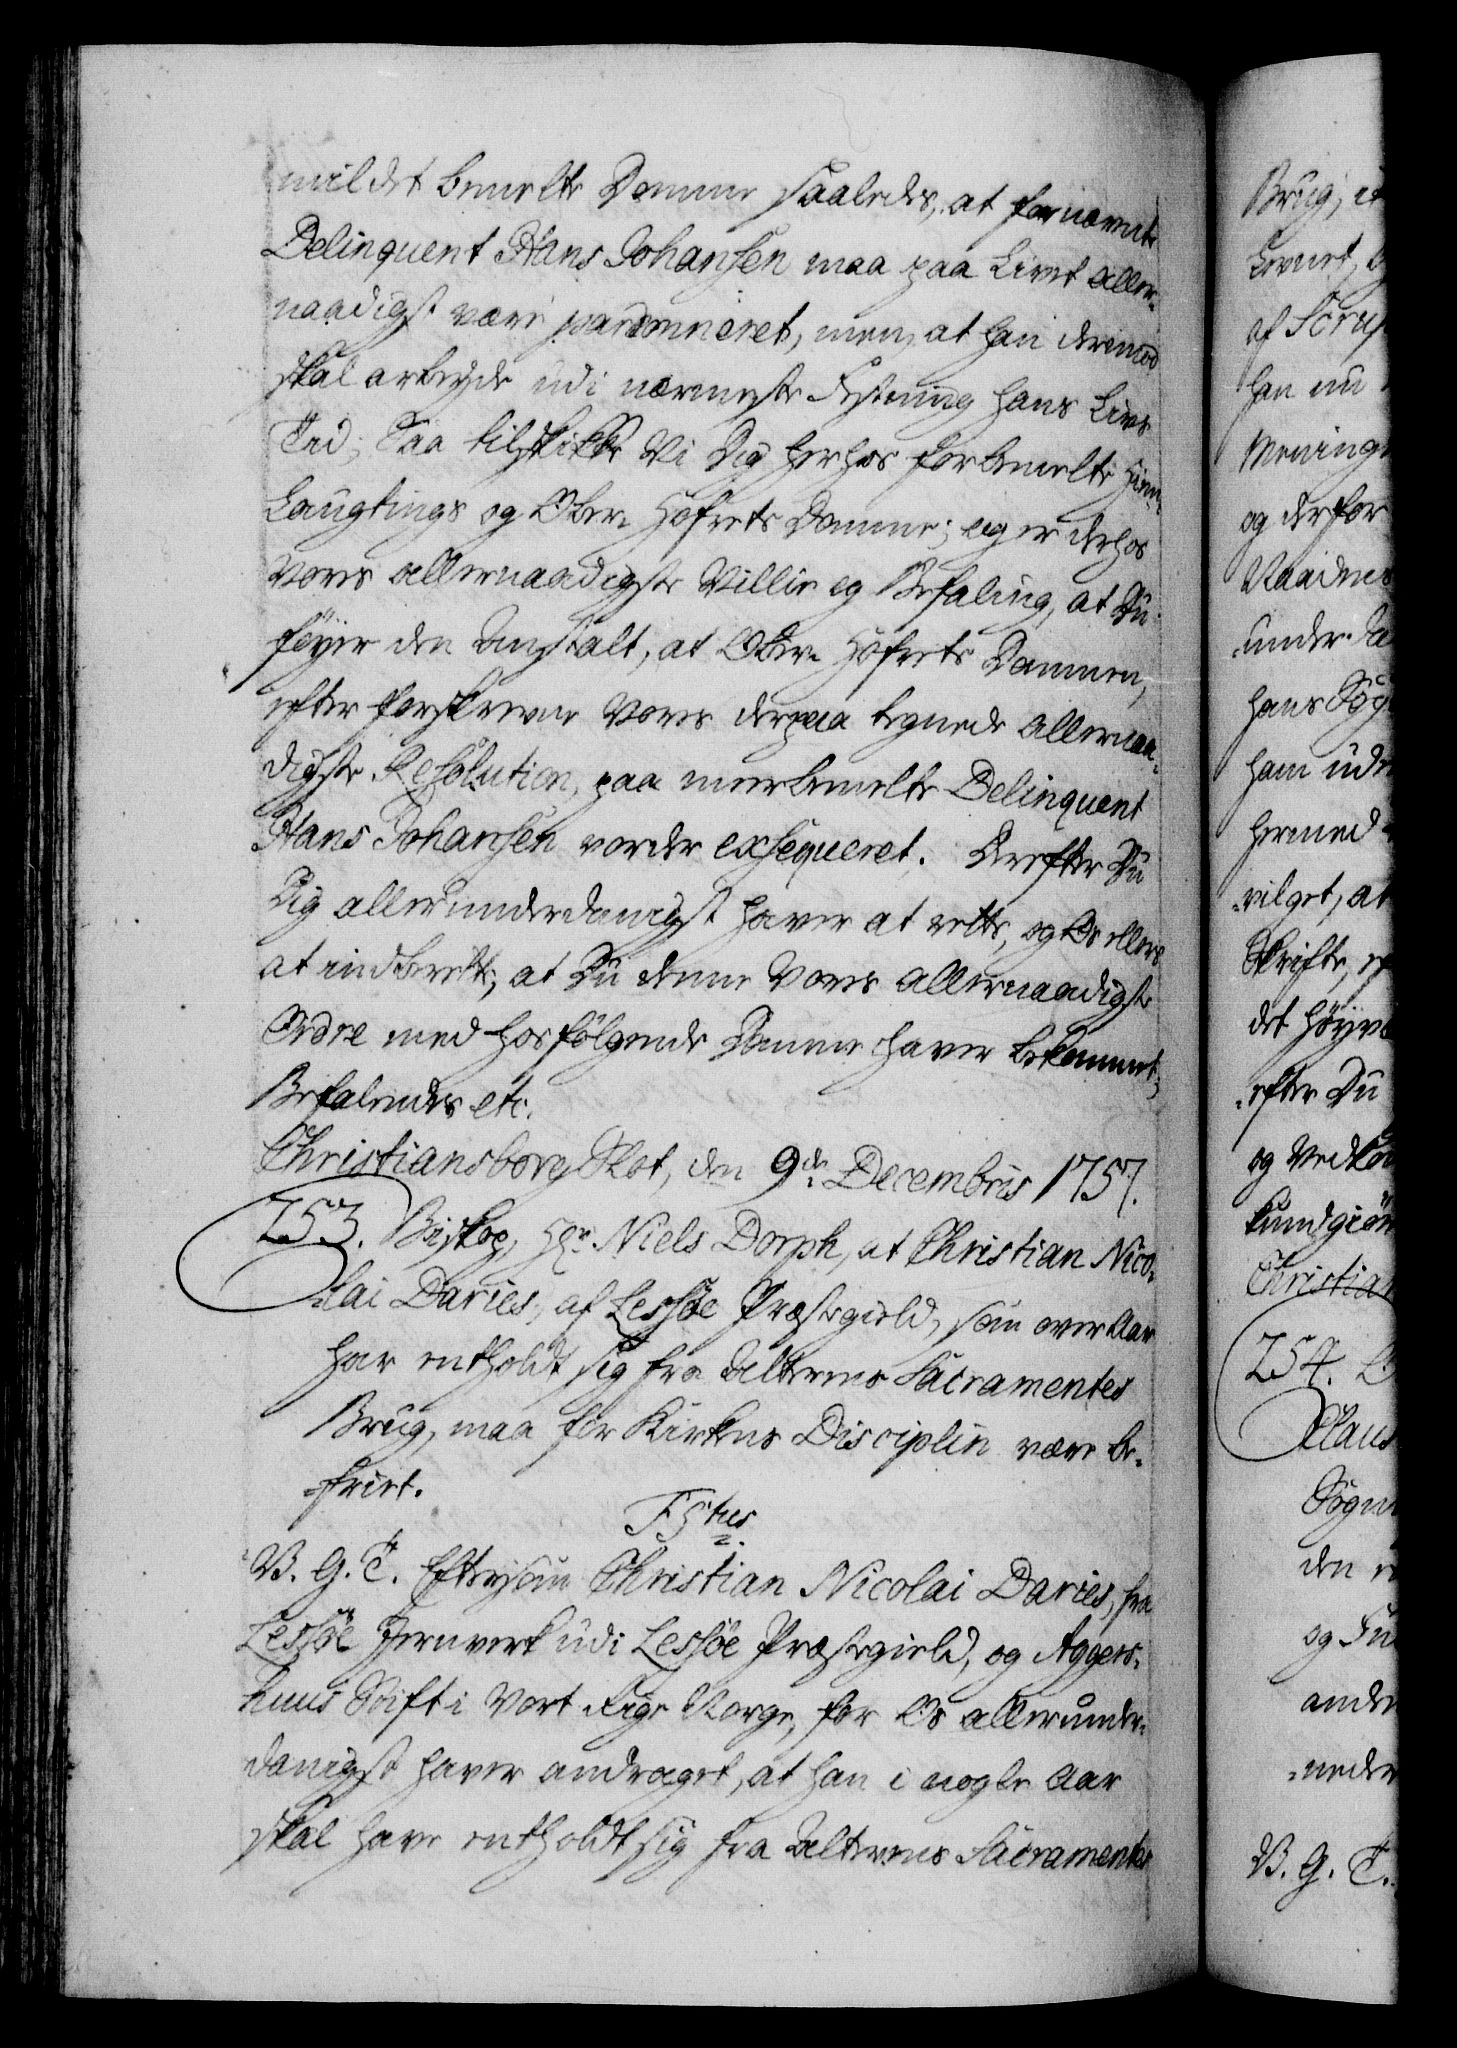 mildet bemelte Domme saaledes, at fornævnte
Delinquent Hans Johansen maa paa Livet aller-
naadigst være pardonneret, men at han derimod
skal arbeyde udi nærmeste Fæstning hans Livs
Tid; Saa tilskikke Vi Dig herhos forbemelte Hiem-
Laugtings og Ober-Hofrets Domme; og er derhos
Vores allernaadigste Villie og Befaling, at Du
föyer den Anstalt, at Ober-Hofrets Dommen,
efter forskrevne Vores derpaa tegnede allernaa-
digste Resolution, paa meerbemelte Delinquent
Hans Johansen vorder exseqveret. Derefter Du
Dig allerunderdanigst haver at rette, og Os ellers
at indberette, at Du denne Vores allernaadigste
Ordre med hosfölgende Domme haver bekommet;
Befalendes etc.
Christiansborg Slot, den 9de Decembris 1757.
753. Biskop, Hr. Niels Dorph, at Christian Nico-
-lai Daries, af Lessöe Præstegield, som over Aar
har entholdt sig fra Alterens Sacramentes
Brug, maa for Kirkens Disciplin være be-
-friet.
F5tus
V. G. T. Eftersom Christian Nicolai Daries, fra
Lessöe Jernverk udi Lessöe Præstegield, og Aggers-
huus Stift i Vort Rige Norge, for Os allerunder-
danigst haver andraget, at han i nogle Aar
skal have entholdt sig fra Alterens Sacramentes
Brug, et
af Scrup
han nu
Meening
og derfor
under Da
ham ud
hermed
-vilget, at
Skrifte, ef
det höyv
-efter Du
og Vedko
kundgiör
Christian
754.
Claus
Sogne
den
og Fu
andre
-neder
V. G. T.